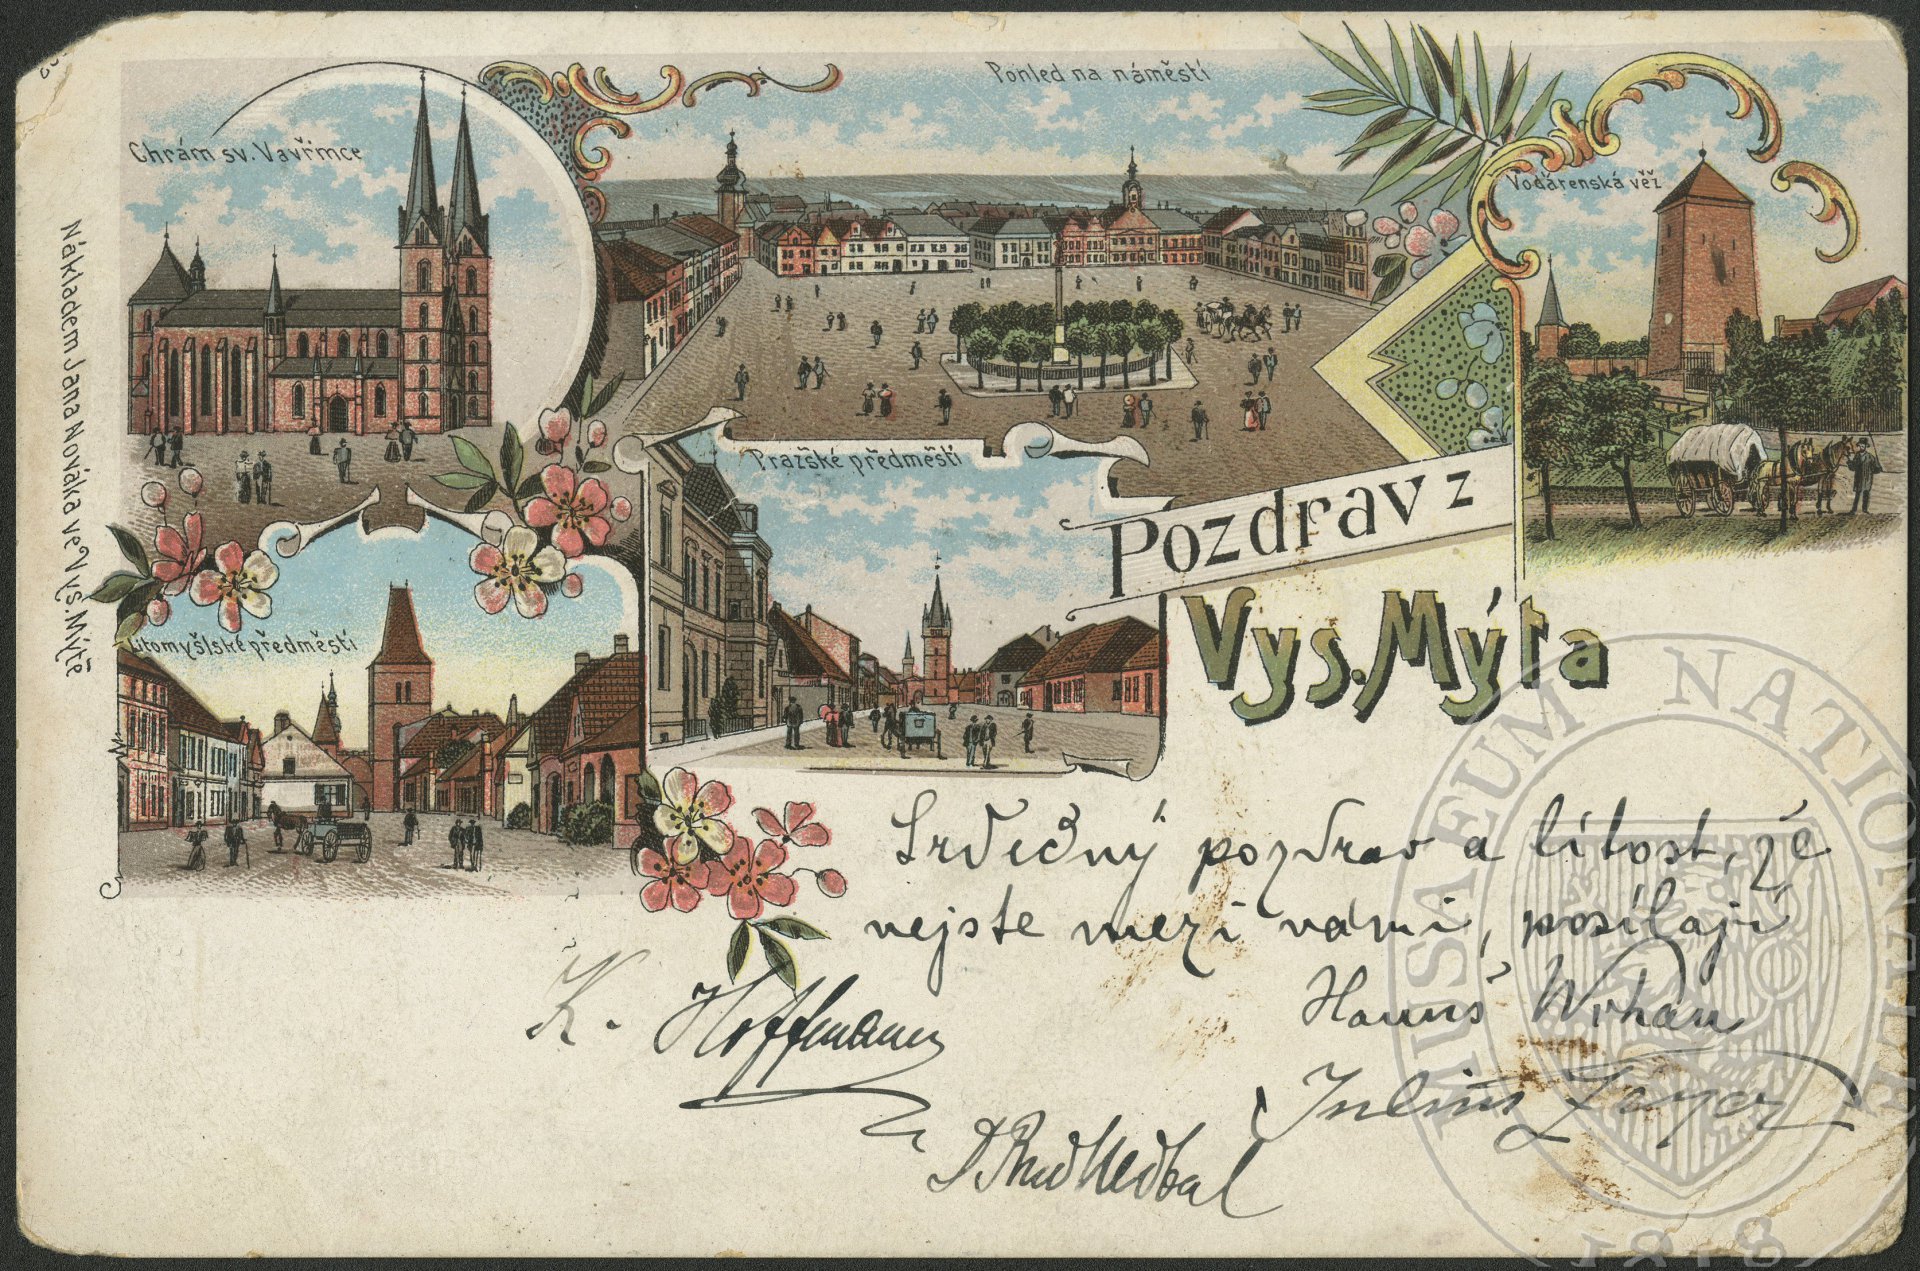 Pohled na náměstí
Chrám sv. Vavřince
Vodárenská věž
Nákladem Jana Nováka ve Vys. Mýtě
Pražské předměstí
Pozdrav z
Vys. Mýta
Litomyšlské předměstí
Srdečný pozdrav a lítost, že
nejste mezi námi, posílají
K. Hoffmann
Hanuš Wihan
Julius Zeyer
Nedbal
MUSAEUM NATIONALE
1818